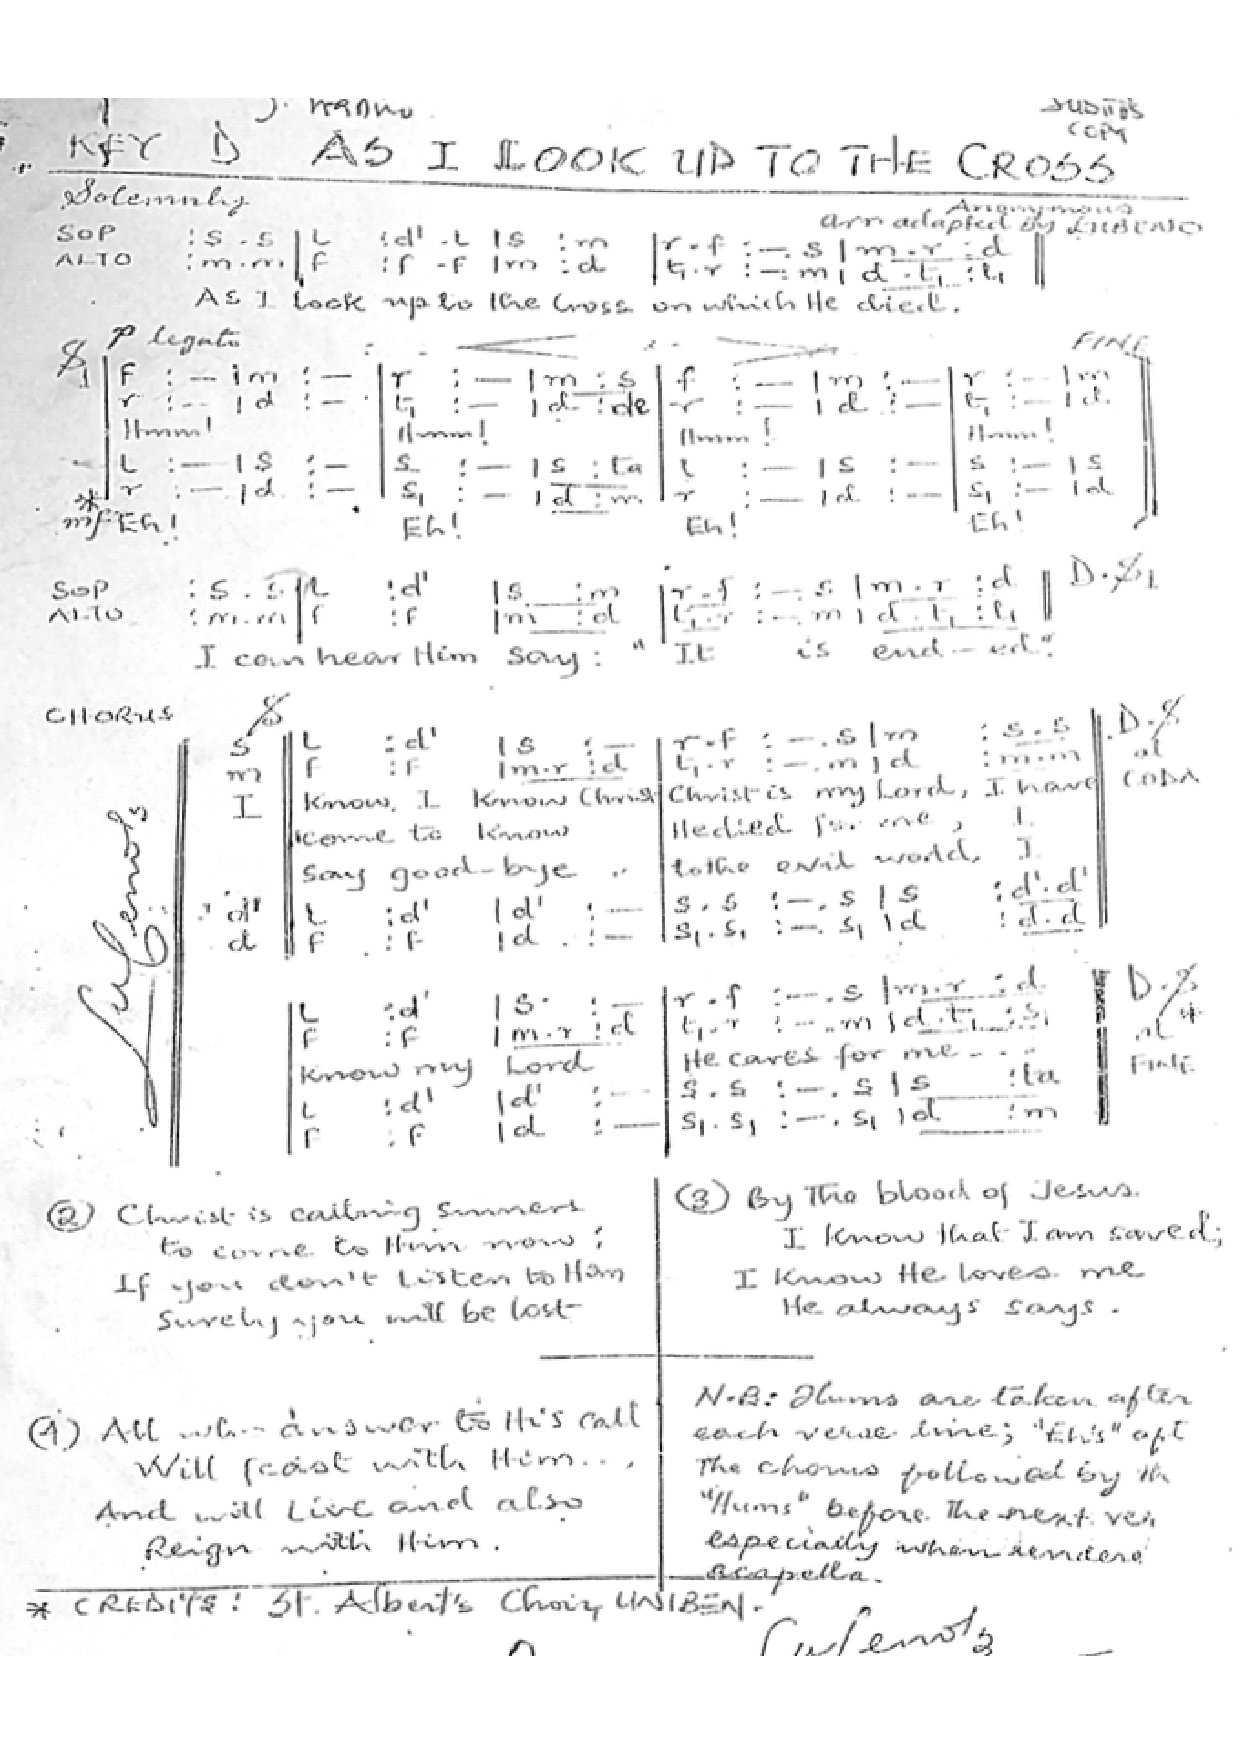 JUDITH'S
COPY
KEY D AS I LOOK UP TO THE CROSS
Solemnly
Anonymous
arr adapted by
SOP :s .s | L :d' .L | s :m | r .f :— .s | m .r :d ||
ALTO :m .m | f :f .f | m :d | t₁ .r :— .m | d .t₁ :t₁ ||
As I look up to the Cross on which He died.
p legato
FINE
𝄋1 | f :— | m :— | r :— | m :s | f :— | m :— | r :— | m
r :— | d :— | t₁ :— | d :de | r :— | d :— | t₁ :— | d
Hmm! Hmm! Hmm! Hmm!
L :— | s :— | s :— | s :ta | L :— | s :— | s :— | s
* r :— | d :— | s₁ :— | d :m | r :— | d :— | s₁ :— | d
mf Eh! Eh! Eh! Eh!
SOP :s .s | L :d' | s :m | r .f :— .s | m .r :d || D.𝄋1
ALTO :m .m | f :f | m :d | t₁ .r :— .m | d .t₁ :t₁ ||
I can hear Him say: "It is end-ed".
CHORUS 𝄋
s || L :d' | s :— | r .f :— .s | m :s .s || D.𝄋
m || f :f | m .r :d | t₁ .r :— .m | d :m .m || al
I Know, I Know Christ Christ is my Lord, I have CODA
come to Know He died for me, I
say good-bye .. to the evil world, I
:d' || L :d' | d' :— | s .s :— .s | s :d' .d'
d || f :f | d :— | s₁ .s₁ :— .s₁ | d :d .d
L :d' | s :— | r .f :— .s | m .r :d || D.𝄋
f :f | m .r :d | t₁ .r :— .m | d .t₁ :s₁ || al *
Know my Lord He cares for me - . . FINE
L :d' | d' :— | s .s :— .s | s :ta
f :f | d :— | s₁ .s₁ :— .s₁ | d :m
(2) Christ is calling sinners
to come to Him now;
If you don't Listen to Him
Surely you will be lost
(3) By The blood of Jesus
I Know that I am saved;
I Know He loves me
He always says.
(4) All who answer to His call
Will feast with Him...
And will Live and also
Reign with Him.
N.B: Hums are taken after
each verse line; "Eh's" aft
The chorus followed by th
"Hums" before the next ver
especially when rendere
acapella.
* CREDITS: St. Albert's Choir, UNIBEN.